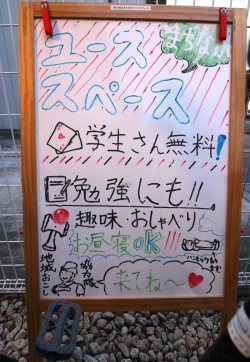 ユース
スペース
学生さん無料!
勉強にも!!
趣味・おしゃべり
お昼寝OK!!!
ハンモックあります
地域おこし
来てね〜